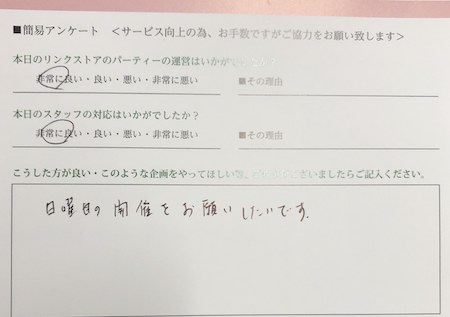 ■簡易アンケート ＜サービス向上の為、お手数ですがご協力をお願い致します＞
本日のリンクストアのパーティーの運営はいかがでしたか？
非常に良い・良い・悪い・非常に悪い ■その理由
本日のスタッフの対応はいかがでしたか？
非常に良い・良い・悪い・非常に悪い ■その理由
こうした方が良い・このような企画をやってほしい等、ございましたらご記入ください。
日曜日の開催をお願いしたいです。